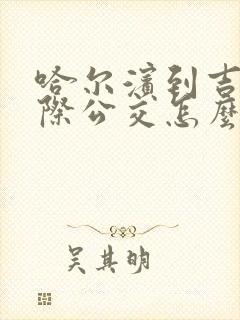 哈尔濱到吉
際公交怎麼
吴其明